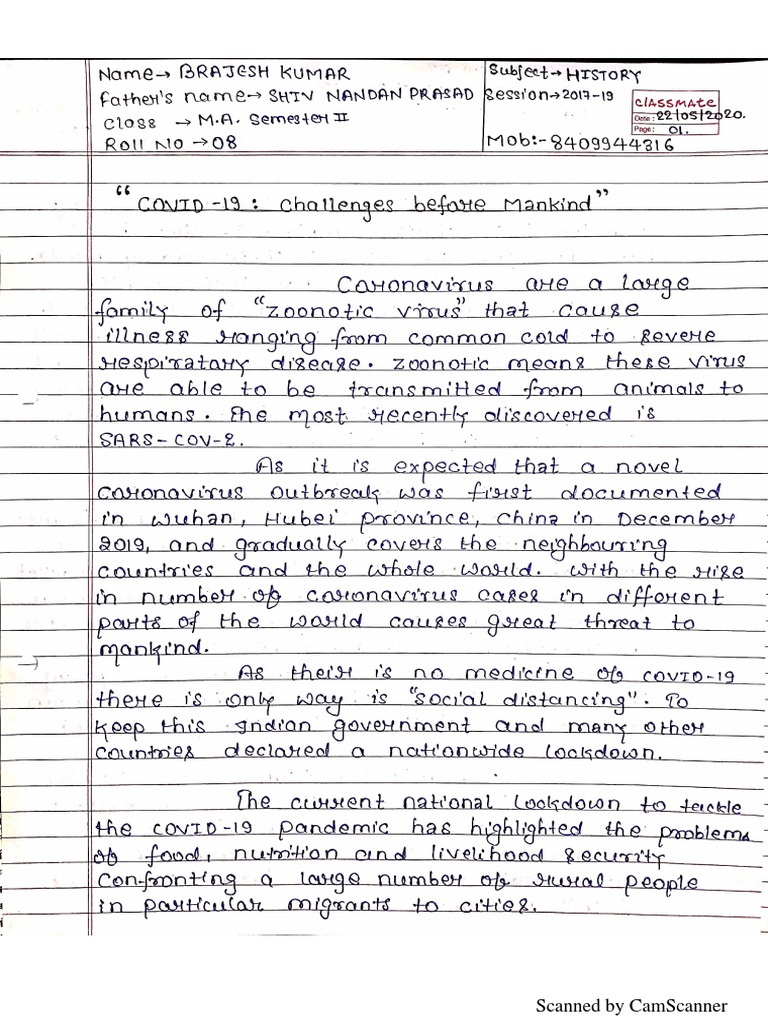 Name→ BRAJESH KUMAR
Father's name→ SHIV NANDAN PRASAD
Class → M.A. Semester II
Roll NO → 08
Subject→ HISTORY
Session→2017-19
CLASSMATE
Date: 22/05/2020.
Page: 01.
Mob:- 8409944316
"COVID-19: Challenges before Mankind"
Coronavirus are a large
family of "zoonotic virus" that cause
illness ranging from common cold to severe
respiratary disease. zoonotic means these virus
are able to be transmitted from animals to
humans. The most recently discovered is
SARS-COV-2.
As it is expected that a novel
coronavirus outbreak was first documented
in wuhan, Hubei province, China in December
2019, and gradually covers the neighbouring
countries and the whole world. With the rise
in number of coronavirus cases in different
parts of the world causes great threat to
mankind.
As their is no medicine of COVID-19
there is only way is "social distancing". To
keep this Indian government and many other
countries declared a nationwide lockdown.
The current national lockdown to tackle
the COVID-19 pandemic has highlighted the problems
of food, nutrition and livelihood security
confronting a large number of rural people
in particular migrants to cities.
Scanned by CamScanner